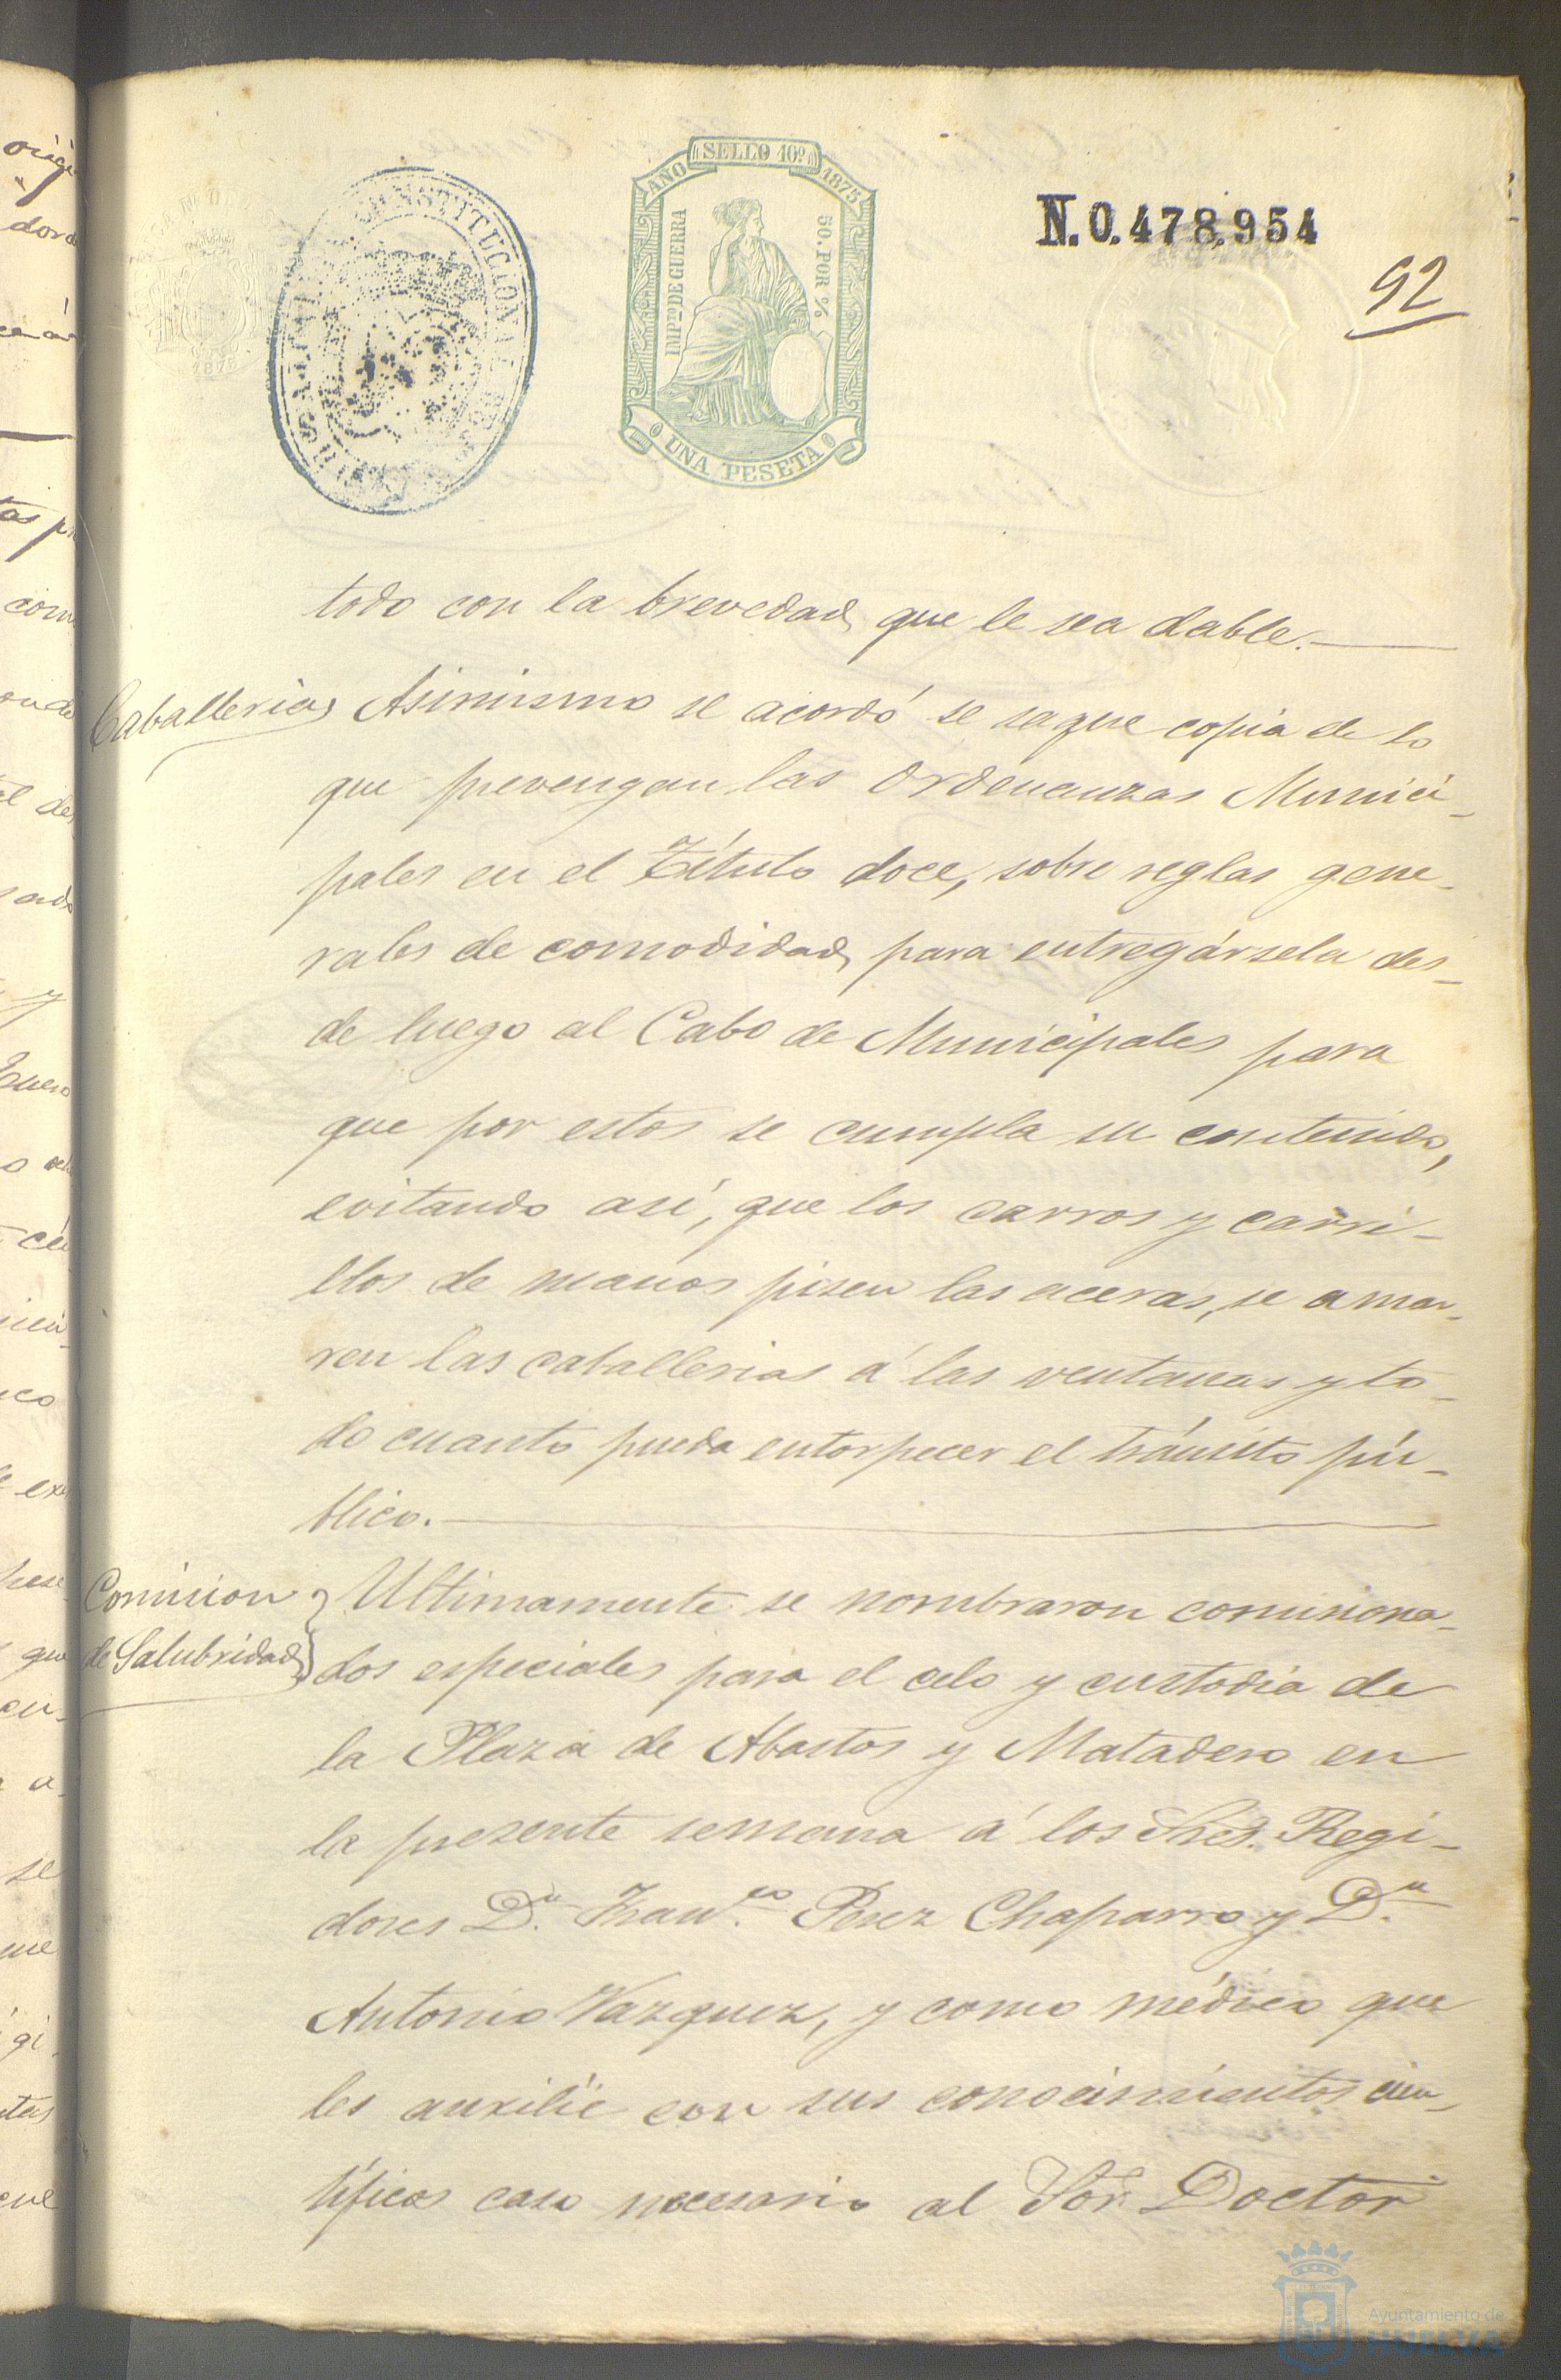 SELLO 10º
AÑO 1875
IMPTO DE GUERRA
50. POR %
UNA PESETA
CONSTITUCIONAL
N.0.478.954
92
todo con la brevedad que le sea dable.
Caballerias Asimismo se acordó se saque copia de lo
que prevengan las Ordenanzas Munici-
pales en el Título doce, sobre reglas gene-
rales de comodidad para entregársela des-
de luego al Cabo de Municipales para
que por estos se cumpla su contenido,
evitando así, que los carros y carri-
llos de manos pisen las aceras, se amar-
ren las caballerias á las ventanas y to-
do cuanto pueda entorpecer el tránsito pú-
blico.
Comision de Salubridad
Ultimamente se nombraron comisiona-
dos especiales para el celo y custodia de
la Plaza de Abastos y Matadero en
la presente semana á los Sres. Regi-
dores D.n Fran.co Perez Chaparro y D.n
Antonio Vazquez, y como médico que
les auxilie con sus conocimientos cien-
tíficos caso necesario al Sor. Doctor
Ayuntamiento de
HUELVA